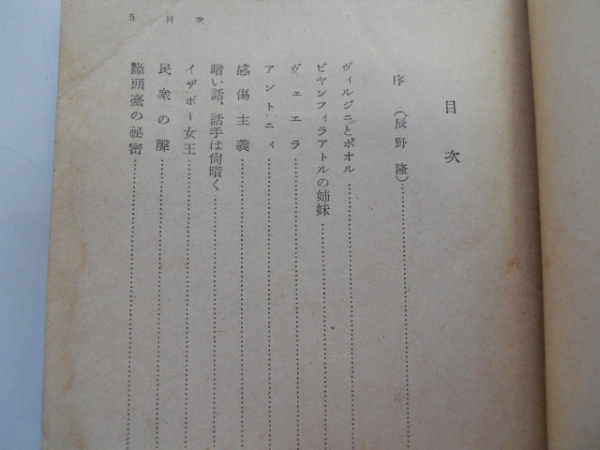 目次
序（辰野隆）
ヴィルジニとポオル
ビヤンフィラアトルの姉妹
ヴェエラ
アントニィ
感傷主義
暗い話、話手は尙暗く
イザボー女王
民衆の聲
斷頭臺の祕密
5 目次